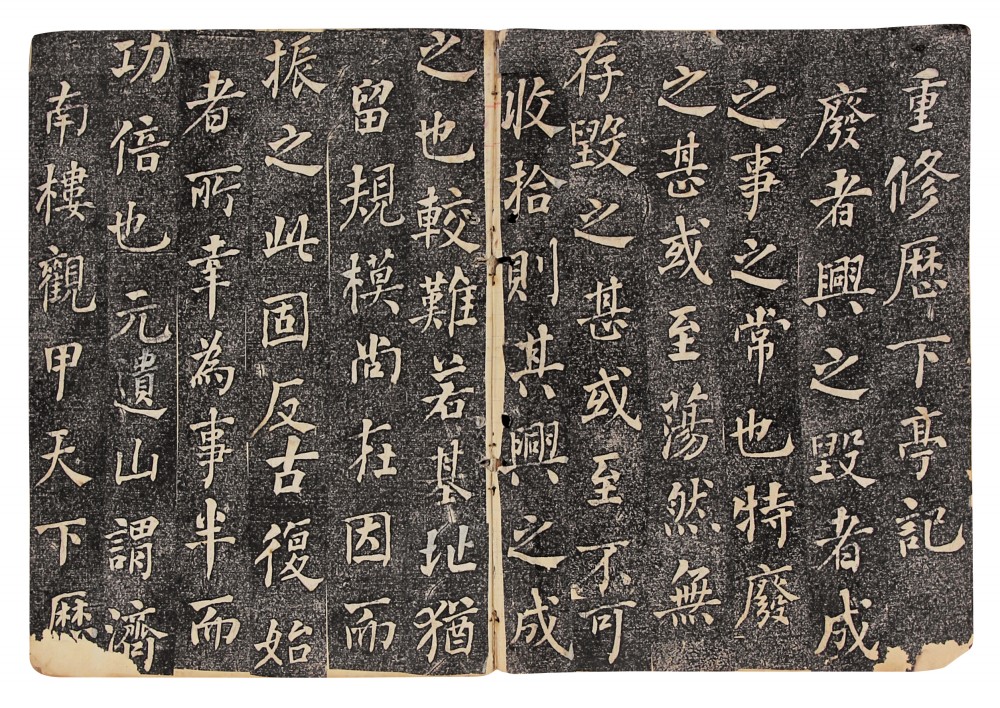 重修歷下亭記
廢者興之毀者成
之事之常也特廢
之甚或至蕩然無
存毀之甚或至不可
收拾則其興之成
之也較難若基址猶
留規模尚在因而
振之此固反古復始
者所幸為事半而
功倍也元遺山謂濟
南樓觀甲天下歷